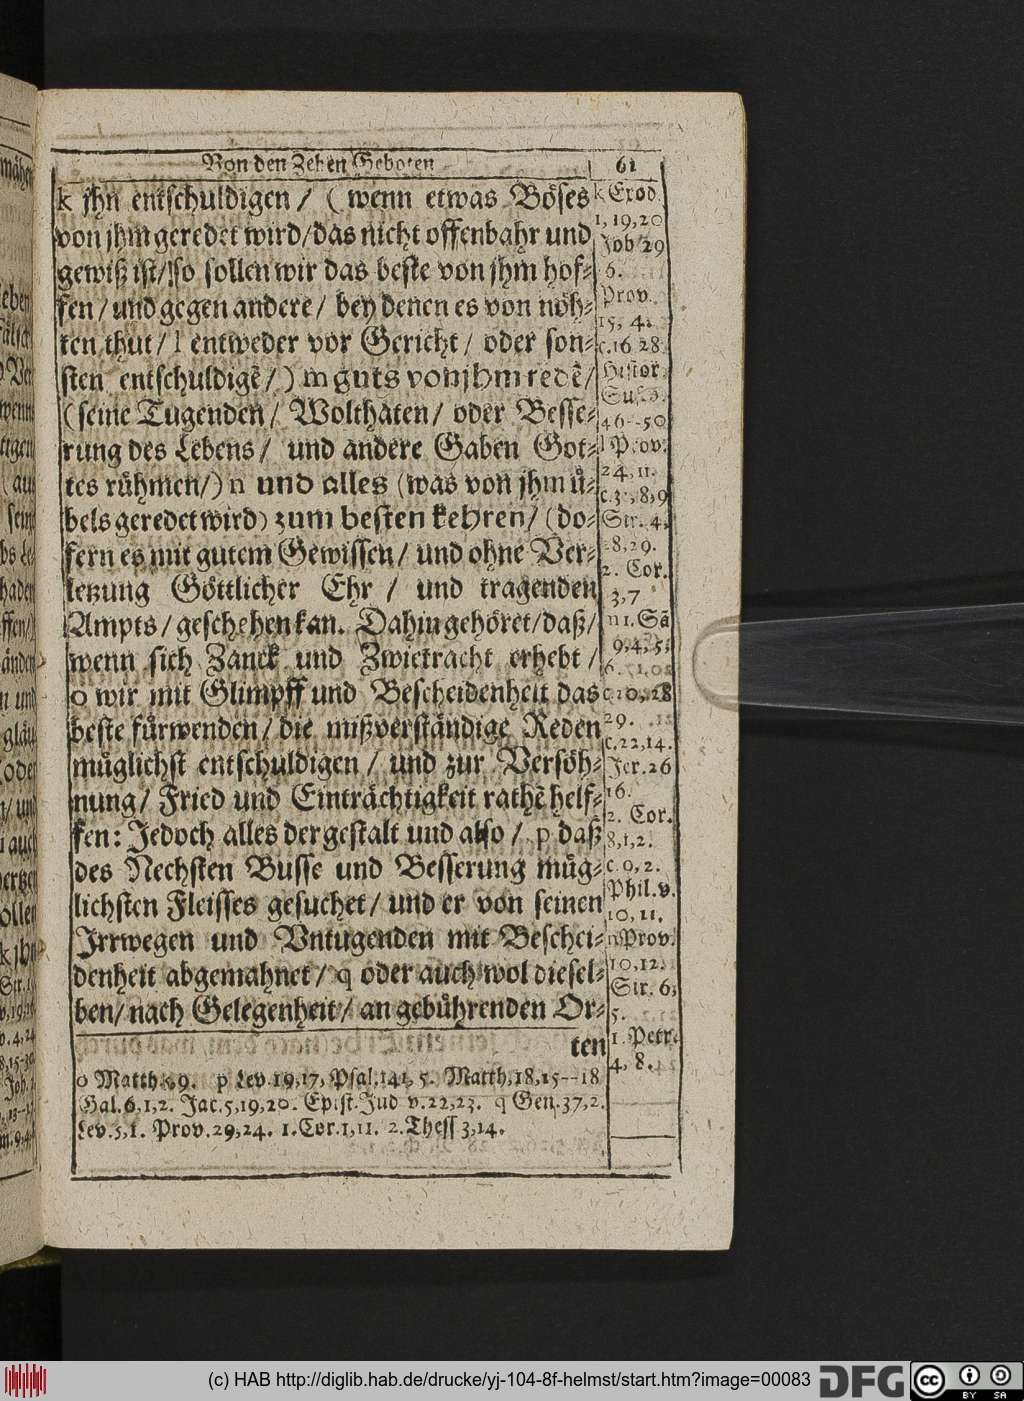 Von den Zehen Geboten
61
k jhn entschuldigen / ( wenn etwas Böses
von jhm geredet wird/das nicht offenbahr und
gewiß ist/so sollen wir das beste von jhm hof-
fen / und gegen andere / bey denen es von nöh-
ten thut / l entweder vor Gericht / oder son-
sten entschuldigẽ /) m guts von jhm redẽ /
(seine Tugenden / Wolthaten / oder Besse-
rung des Lebens / und andere Gaben Got-
tes rühmen/) n und alles (was von jhm ü-
bels geredet wird) zum besten kehren / (do-
fern es mit gutem Gewissen / und ohne Ver-
letzung Göttlicher Ehr / und tragenden
Ampts / geschehen kan. Dahin gehöret/daß/
wenn sich Zanck und Zwietracht erhebt /
o wir mit Glimpff und Bescheidenheit das
beste fürwenden / die mißverständige Reden
müglichst entschuldigen / und zur Versöh-
nung / Fried und Einträchtigkeit rathẽ helf-
fen: Jedoch alles dergestalt und also / p daß
des Nechsten Busse und Besserung müg-
lichsten Fleisses gesuchet / und er von seinen
Jrrwegen und Vntugenden mit Beschei-
denheit abgemahnet / q oder auch wol diesel-
ben / nach Gelegenheit / an gebührenden Or-
ten
k Exod.
1, 19, 20
Job 29
6.
Prov.
15, 4.
c. 16 28
Histor.
46--50
l Prov.
24, 11.
c. 31, 8, 9
Sir. 4.
28, 29.
2. Cor.
3, 7
n 1. Sã
9, 4, 5,
29.
c. 22, 14.
Jer. 26
16.
2. Cor.
8, 1, 2.
Phil. v.
10, 11.
n Prov.
10, 12.
Sir. 6,
5.
1. Petr.
4, 8.
o Matth. 5, 9. p Lev. 19, 17, Psal. 141, 5. Matth. 18, 15--18
Gal. 6, 1, 2. Jac. 5, 19, 20. Epist. Jud v. 22, 23. q Gen. 37, 2.
Lev. 5, 1. Prov. 29, 24. 1. Cor. 1, 11. 2. Thess 3, 14.
(c) HAB http://diglib.hab.de/drucke/yj-104-8f-helmst/start.htm?image=00083
DFG
cc BY SA